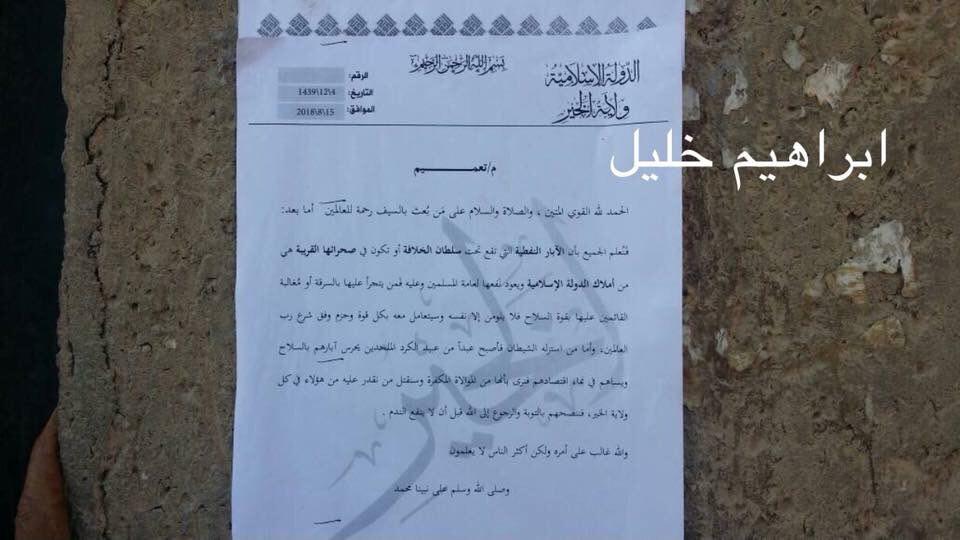 بسم الله الرحمن الرحيم
الدولة الإسلامية
ولاية الخير
الرقم:
التاريخ: 4\12\1439
الموافق: 15\8\2018
ابراهيم خليل
م/تعميم
الحمد لله القوي المتين ، والصلاة والسلام على مَن بُعث بالسيف رحمة للعالمين أما بعد:
فنُعلم الجميع بأن الآبار النفطية التي تقع تحت سلطان الخلافة أو تكون في صحرائها القريبة هي
من أملاك الدولة الإسلامية ويعود نفعها لعامة المسلمين وعليه فمن يتجرأ عليها بالسرقة أو مُغالبة
القائمين عليها بقوة السلاح فلا يلومن إلا نفسه وسيتعامل معه بكل قوة وحزم وفق شرع رب
العالمين، وأما من استزله الشيطان فأصبح عبداً من عبيد الكرد الملحدين يحرس آبارهم بالسلاح
ويساهم في بناء اقتصادهم فنرى بأنها من الموالاة المكفرة وسنقتل من نقدر عليه من هؤلاء في كل
ولاية الخير، فننصحهم بالتوبة والرجوع إلى الله قبل أن لا ينفع الندم .
والله غالب على أمره ولكن أكثر الناس لا يعلمون
وصلى الله وسلم على نبينا محمد
الخير